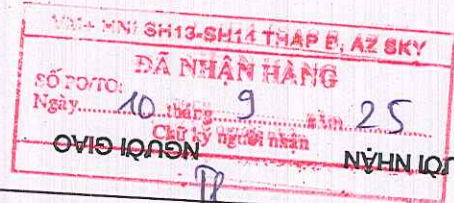 HNI SH13-SH14 THAP B, AZ SKY
ĐÃ NHẬN HÀNG
SỐ PO/TO:
Ngày 10 tháng 9 năm 25
Chữ ký người nhận
NGƯỜI GIAO
ƯỜI NHẬN